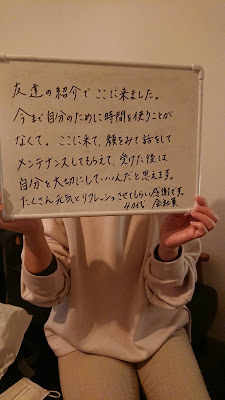 友達の紹介でここに来ました。
今まで自分のために時間を使うことが
なくて。ここに来て、顔をみて話をして
メンテナンスしてもらえて、受けた後は
自分を大切にしていいんだと思えます。
たくさん元気とリフレッシュさせてもらい感謝です。
40代 会社員